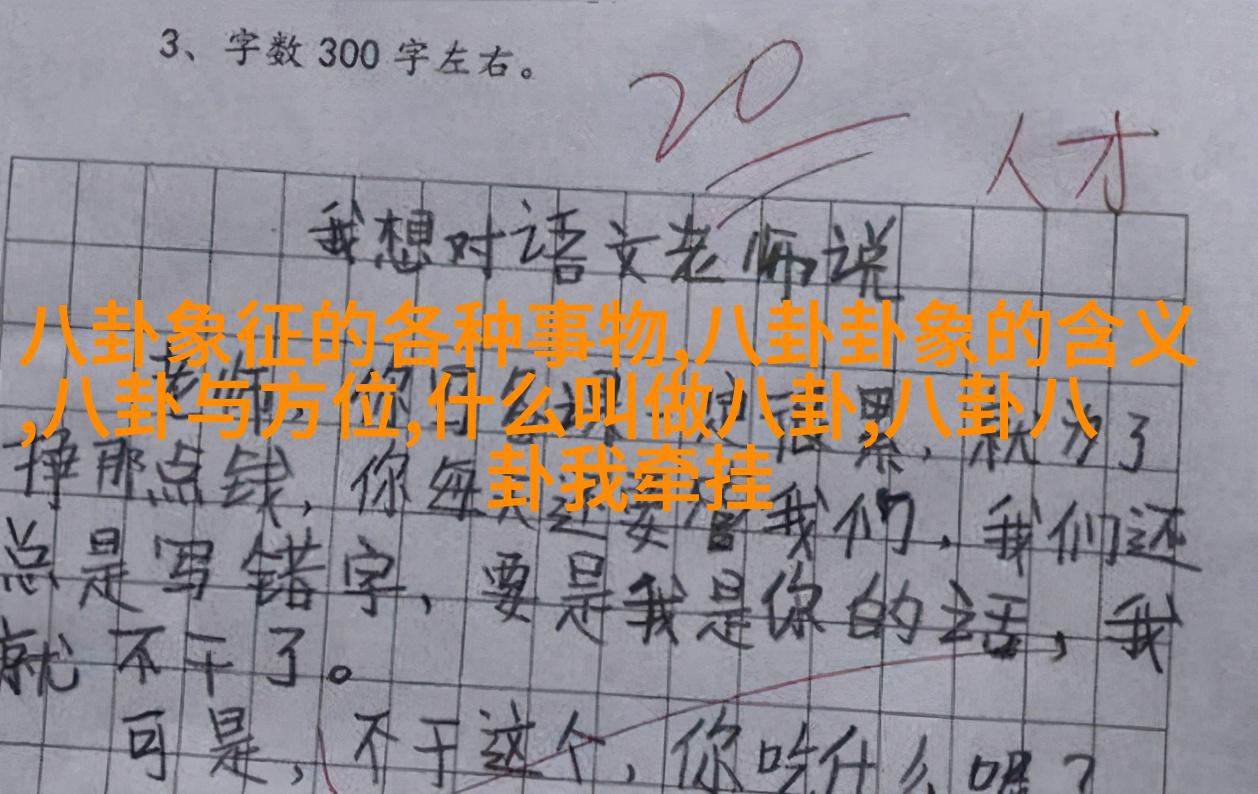 3、字数 300 字左右。
20
人才
我想对语文老师说
八卦象征的各种事物,八卦卦象的含义
,八卦与方位,什么叫做八卦,八卦八
卦我牵挂
累，就为了
挣那点钱，你每天还要管我们，我们还
总是写错字，要是我是你的话，我
就不干了。
可是，不干这个，你吃什么呢？